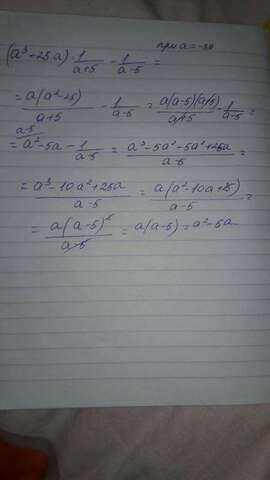 при a = -39
(a³ - 25a) · 1/(a+5) - 1/(a-5) =
= a(a² - 25)/(a+5) - 1/(a-5) = a(a-5)(a+5)/(a+5) - 1/(a-5) =
a-5
= a² - 5a - 1/(a-5) = (a³ - 5a² - 5a² + 25a)/(a-5) =
= (a³ - 10a² + 25a)/(a-5) = a(a² - 10a + 25)/(a-5) =
= a(a-5)²/(a-5) = a(a-5) = a² - 5a